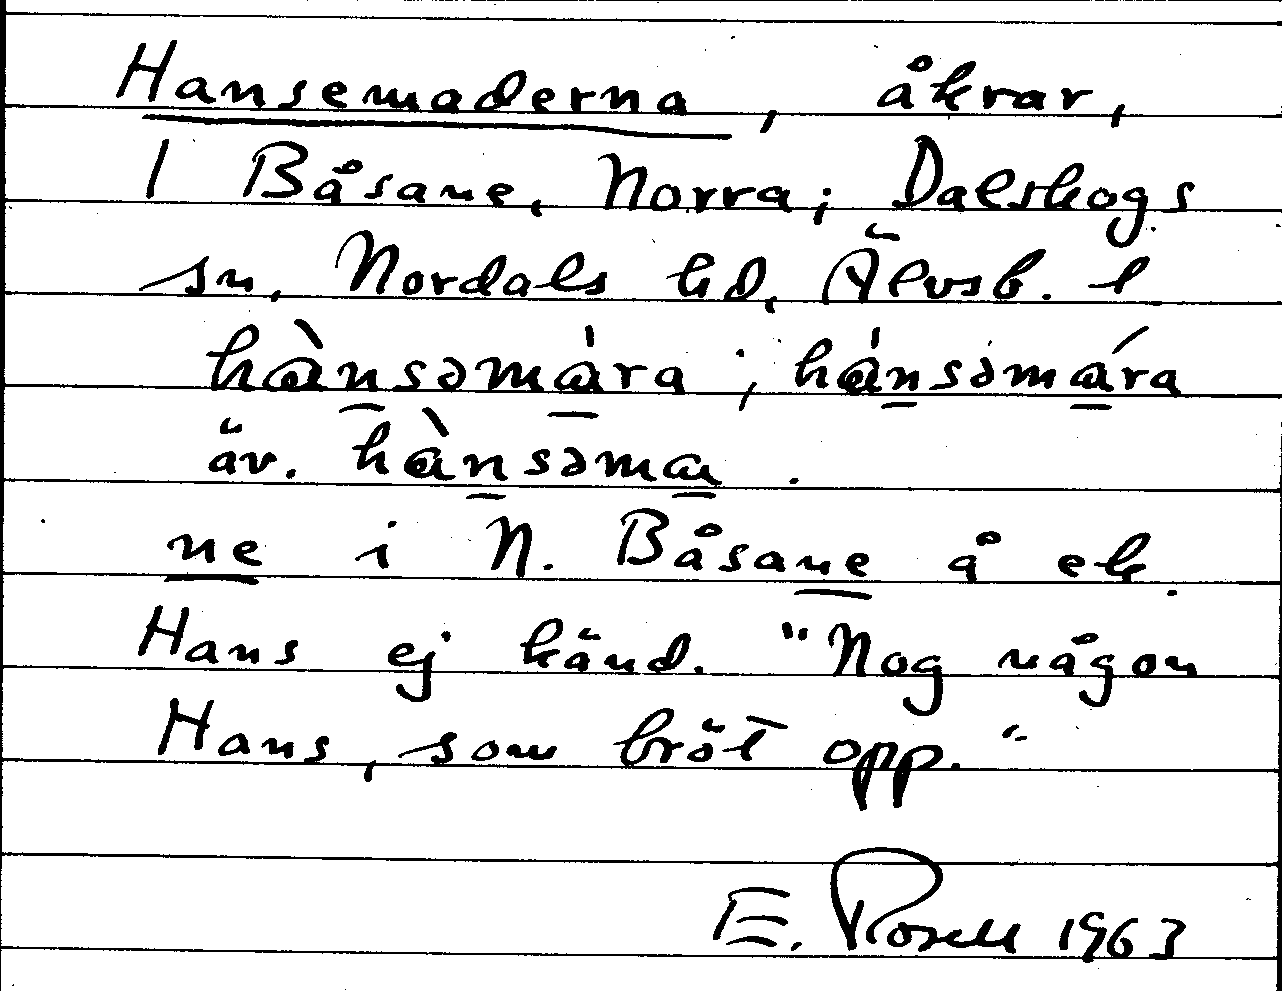 Hansemaderna, åkrar,
1 Båsane, Norra; Dalskogs
sn, Nordals hd, Älvsb. l
hànsəmàra; hànsəmára
äv. hànsəma.
ne i N. Båsane å ek.
Hans ej känd. "Nog någon
Hans, som bröt opp."
E. Rosell 1963